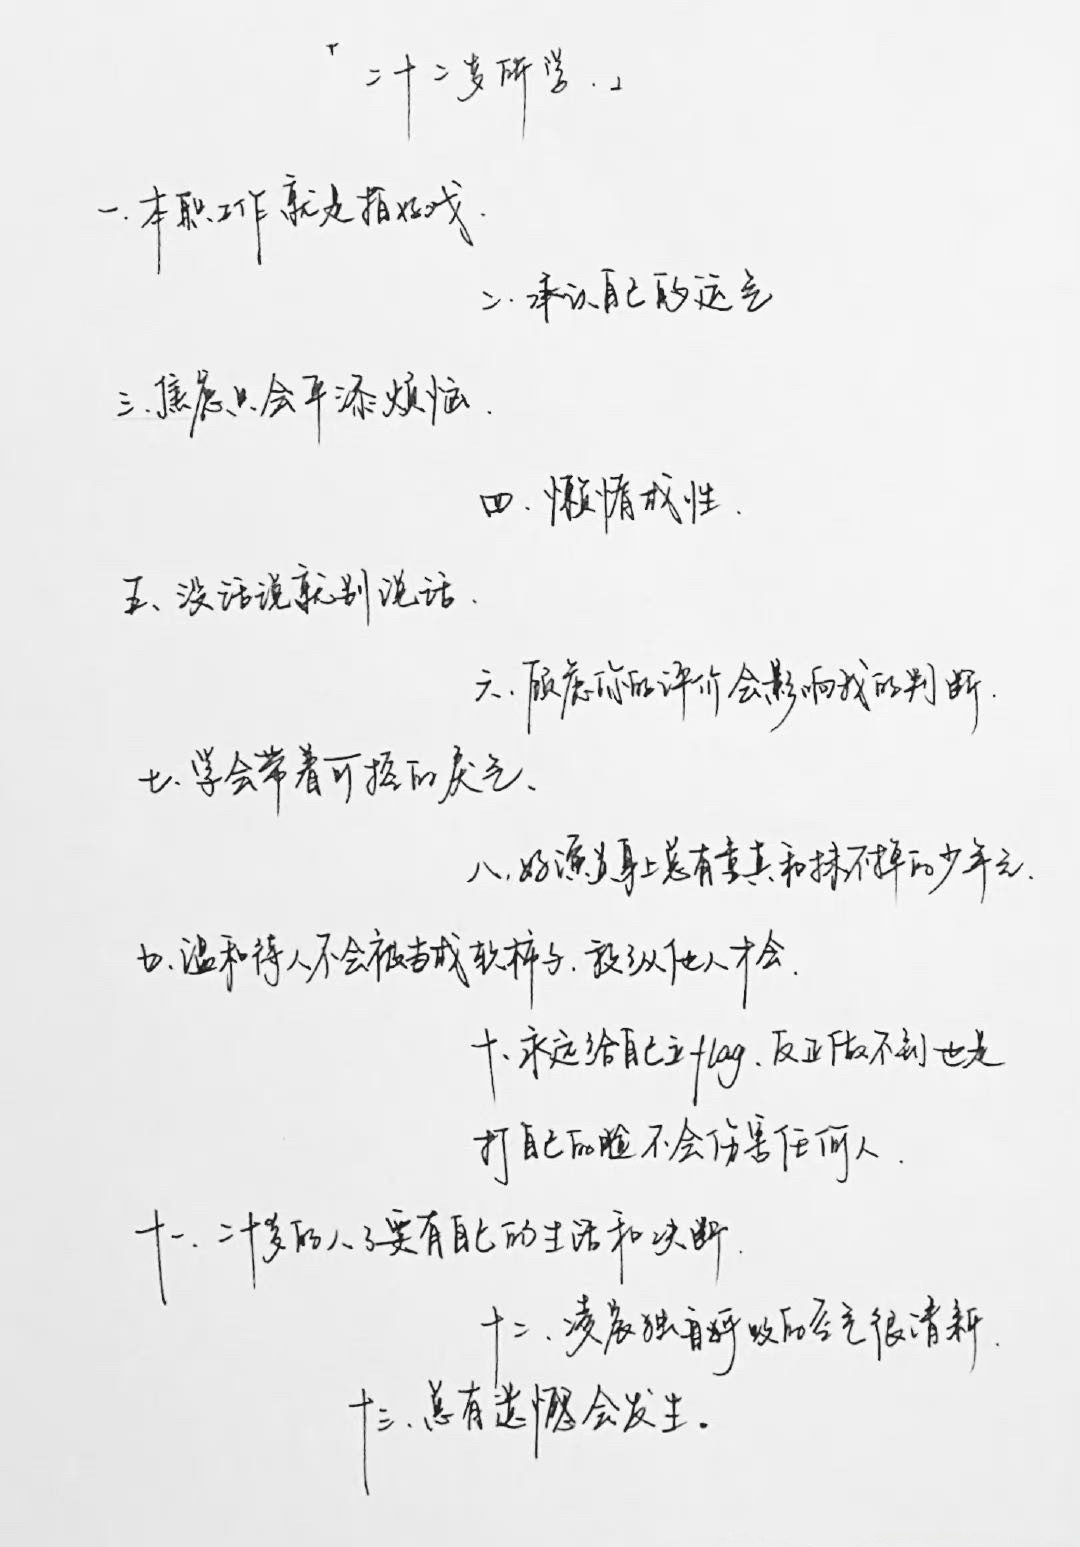 「二十二岁所学.」
一.本职工作就是拍好戏.
二.承认自己的运气
三.焦虑只会平添烦恼.
四.懒惰成性.
五、没话说就别说话.
六.顾虑你的评价会影响我的判断.
七、学会带着可控的戾气、
八.好演员身上总有童真和抹不掉的少年气.
九、温和待人不会被当成软柿子.放纵他人才会.
十、永远给自己立flag、反正做不到也是
打自己的脸不会伤害任何人.
十一、二十岁的人了要有自己的生活和决断.
十二、凌晨独自呼吸的空气很清新.
十三、总有遗憾会发生。